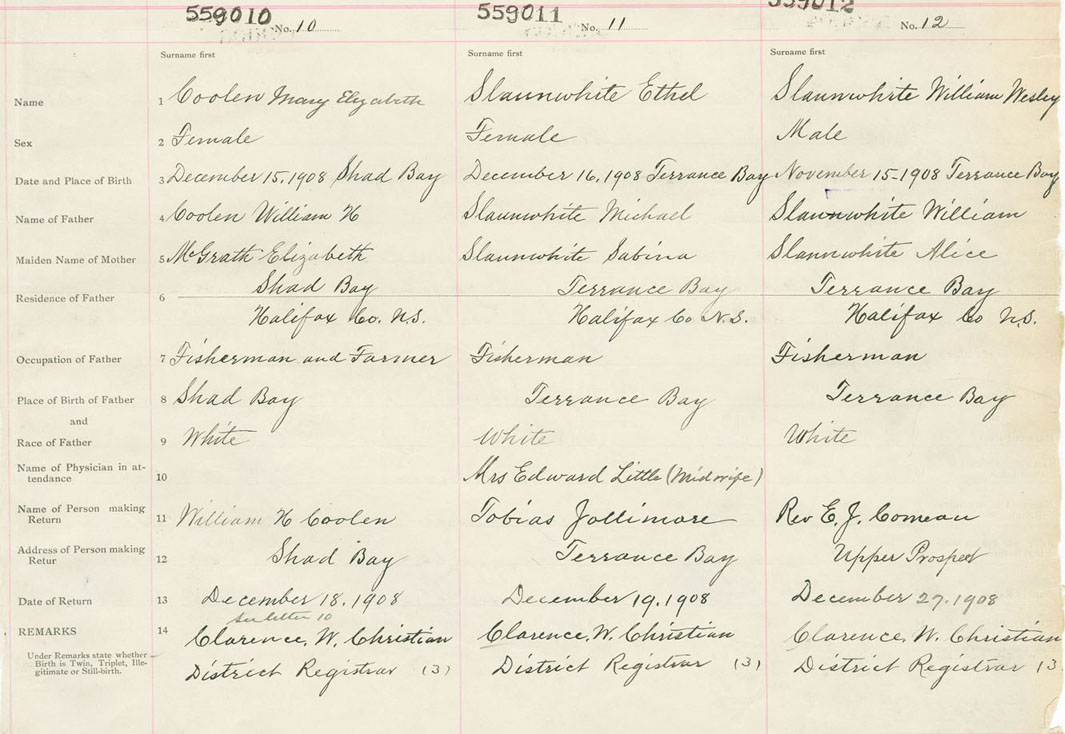 559010 No. 10 559011 No. 11 559012 No. 12
Surname first Surname first Surname first
Name 1 Coolen Mary Elizabeth Slaunwhite Ethel Slaunwhite William Wesley
Sex 2 Female Female Male
Date and Place of Birth 3 December 15, 1908 Shad Bay December 16, 1908 Terrance Bay November 15-1908 Terrance Bay
Name of Father 4 Coolen William H Slaunwhite Michael Slaunwhite William
Maiden Name of Mother 5 McGrath Elizabeth Slaunwhite Sabina Slaunwhite Alice
Residence of Father 6 Shad Bay Terrance Bay Terrance Bay
Halifax Co. N.S. Halifax Co N.S. Halifax Co N.S.
Occupation of Father 7 Fisherman and Farmer Fisherman Fisherman
Place of Birth of Father 8 Shad Bay Terrance Bay Terrance Bay
and
Race of Father 9 White White White
Name of Physician in at-
tendance 10 Mrs Edward Little (Midwife)
Name of Person making
Return 11 William H Coolen Tobias Jollimore Rev E. J. Comeau
Address of Person making
Retur 12 Shad Bay Terrance Bay Upper Prospect
Date of Return 13 December 18. 1908 December 19. 1908 December 27. 1908
see letter 10
REMARKS 14 Clarence. W. Christian Clarence. W. Christian Clarence. W. Christian
Under Remarks state whether
Birth is Twin, Triplet, Ille-
gitimate or Still-birth.
District Registrar (3) District Registrar (3) District Registrar (3